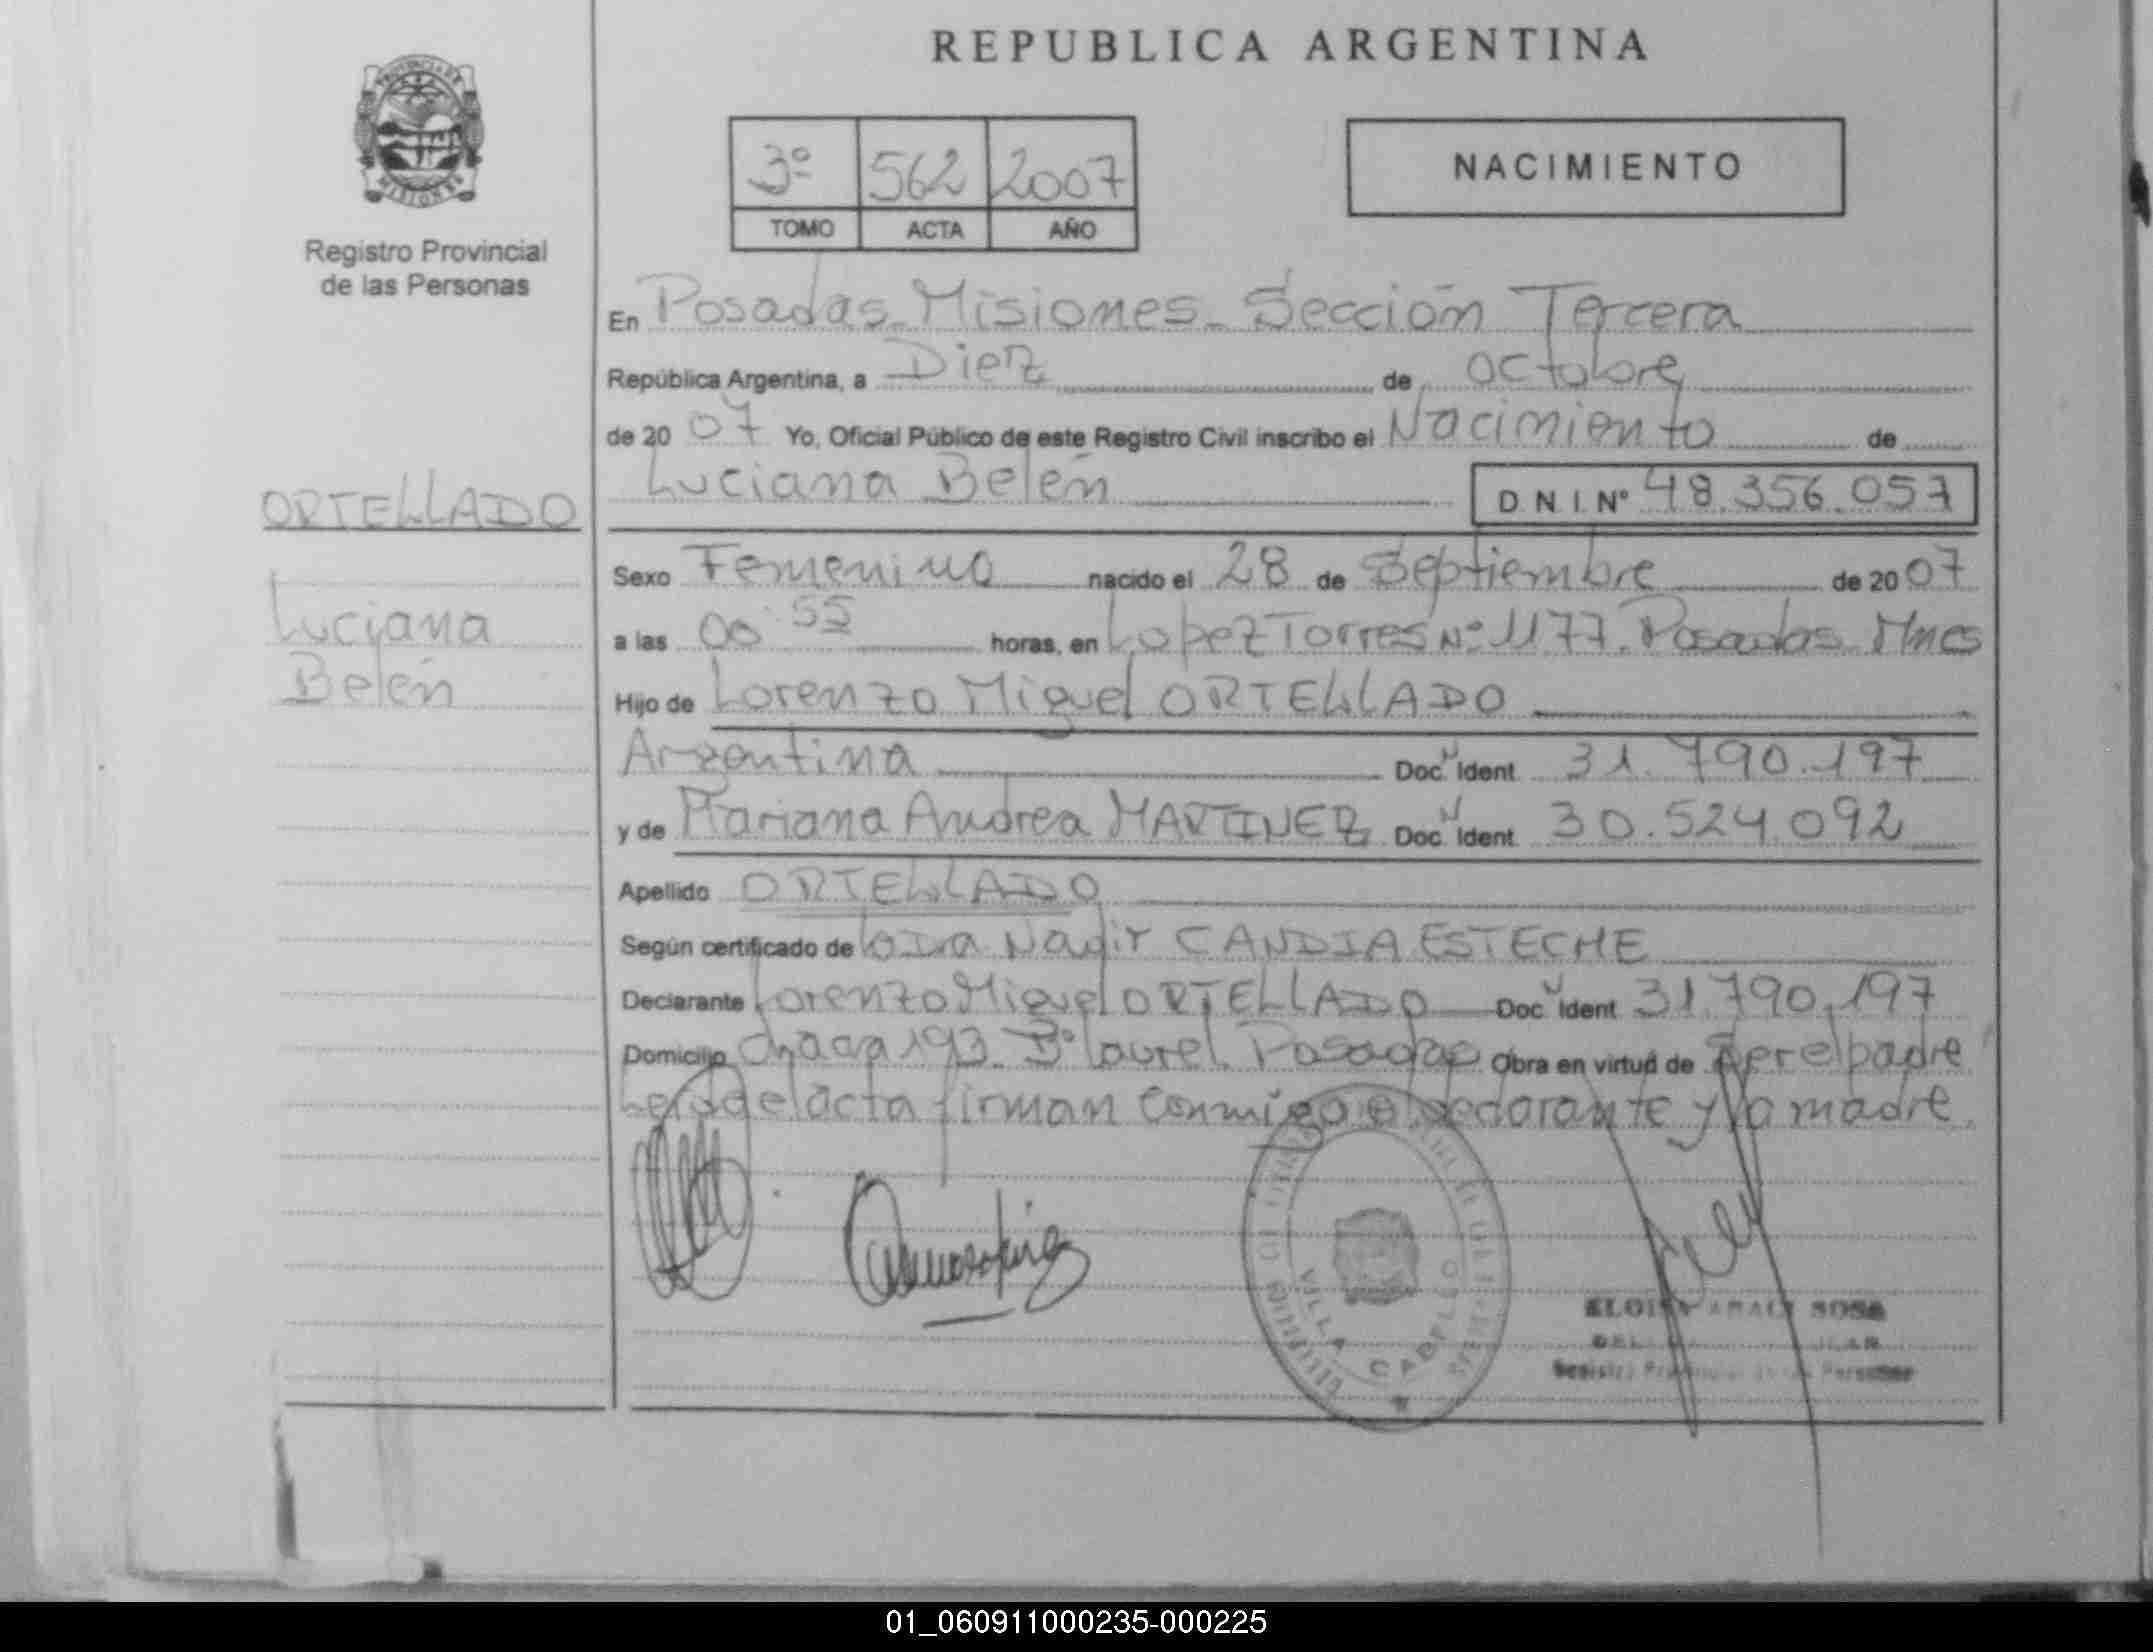 REPUBLICA ARGENTINA
PROVINCIA DE
MISIONES
Registro Provincial
de las Personas
3º 562 2007
TOMO ACTA AÑO
NACIMIENTO
En Posadas Misiones Sección Tercera
República Argentina, a Diez de octubre
de 2007 Yo, Oficial Público de este Registro Civil inscribo el Nacimiento de
Luciana Belén D.N.I. Nº 48.356.057
ORTELLADO
Luciana
Belén
Sexo Femenino nacido el 28 de Septiembre de 2007
a las 00:55 horas, en Lopez Torres Nº 1177. Posadas Mnes
Hijo de Lorenzo Miguel ORTELLADO
Argentina Doc. Ident. 31.790.197
y de Mariana Andrea MARTINEZ Doc. Ident. 30.524.092
Apellido ORTELLADO
Según certificado de Nadir CANDIA ESTECHE
Declarante Lorenzo Miguel ORTELLADO Doc. Ident 31.790.197
Domicilio chacra 193 Bº laurel. Posadas Obra en virtud de ser el padre
el acta firman conmigo el declarante y la madre.
VILLA CABELLO
SOSA
Registro Provincial de las Personas
01_060911000235-000225